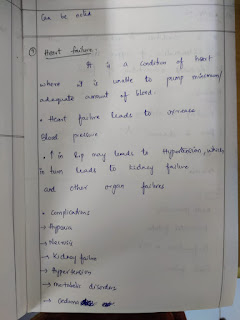 Can be noted
Heart failure :-
It is a condition of heart
where it is unable to pump minimum/
adequate amount of blood.
• Heart failure leads to increase
Blood pressure
• ↑ in Bp may leads to Hypertension, which
in turn leads to kidney failure
and other organ failures
• complications
→ Hypoxia
→ Necrosis
→ Kidney failure
→ Hypertension
→ metabolic disorders
→ oedema